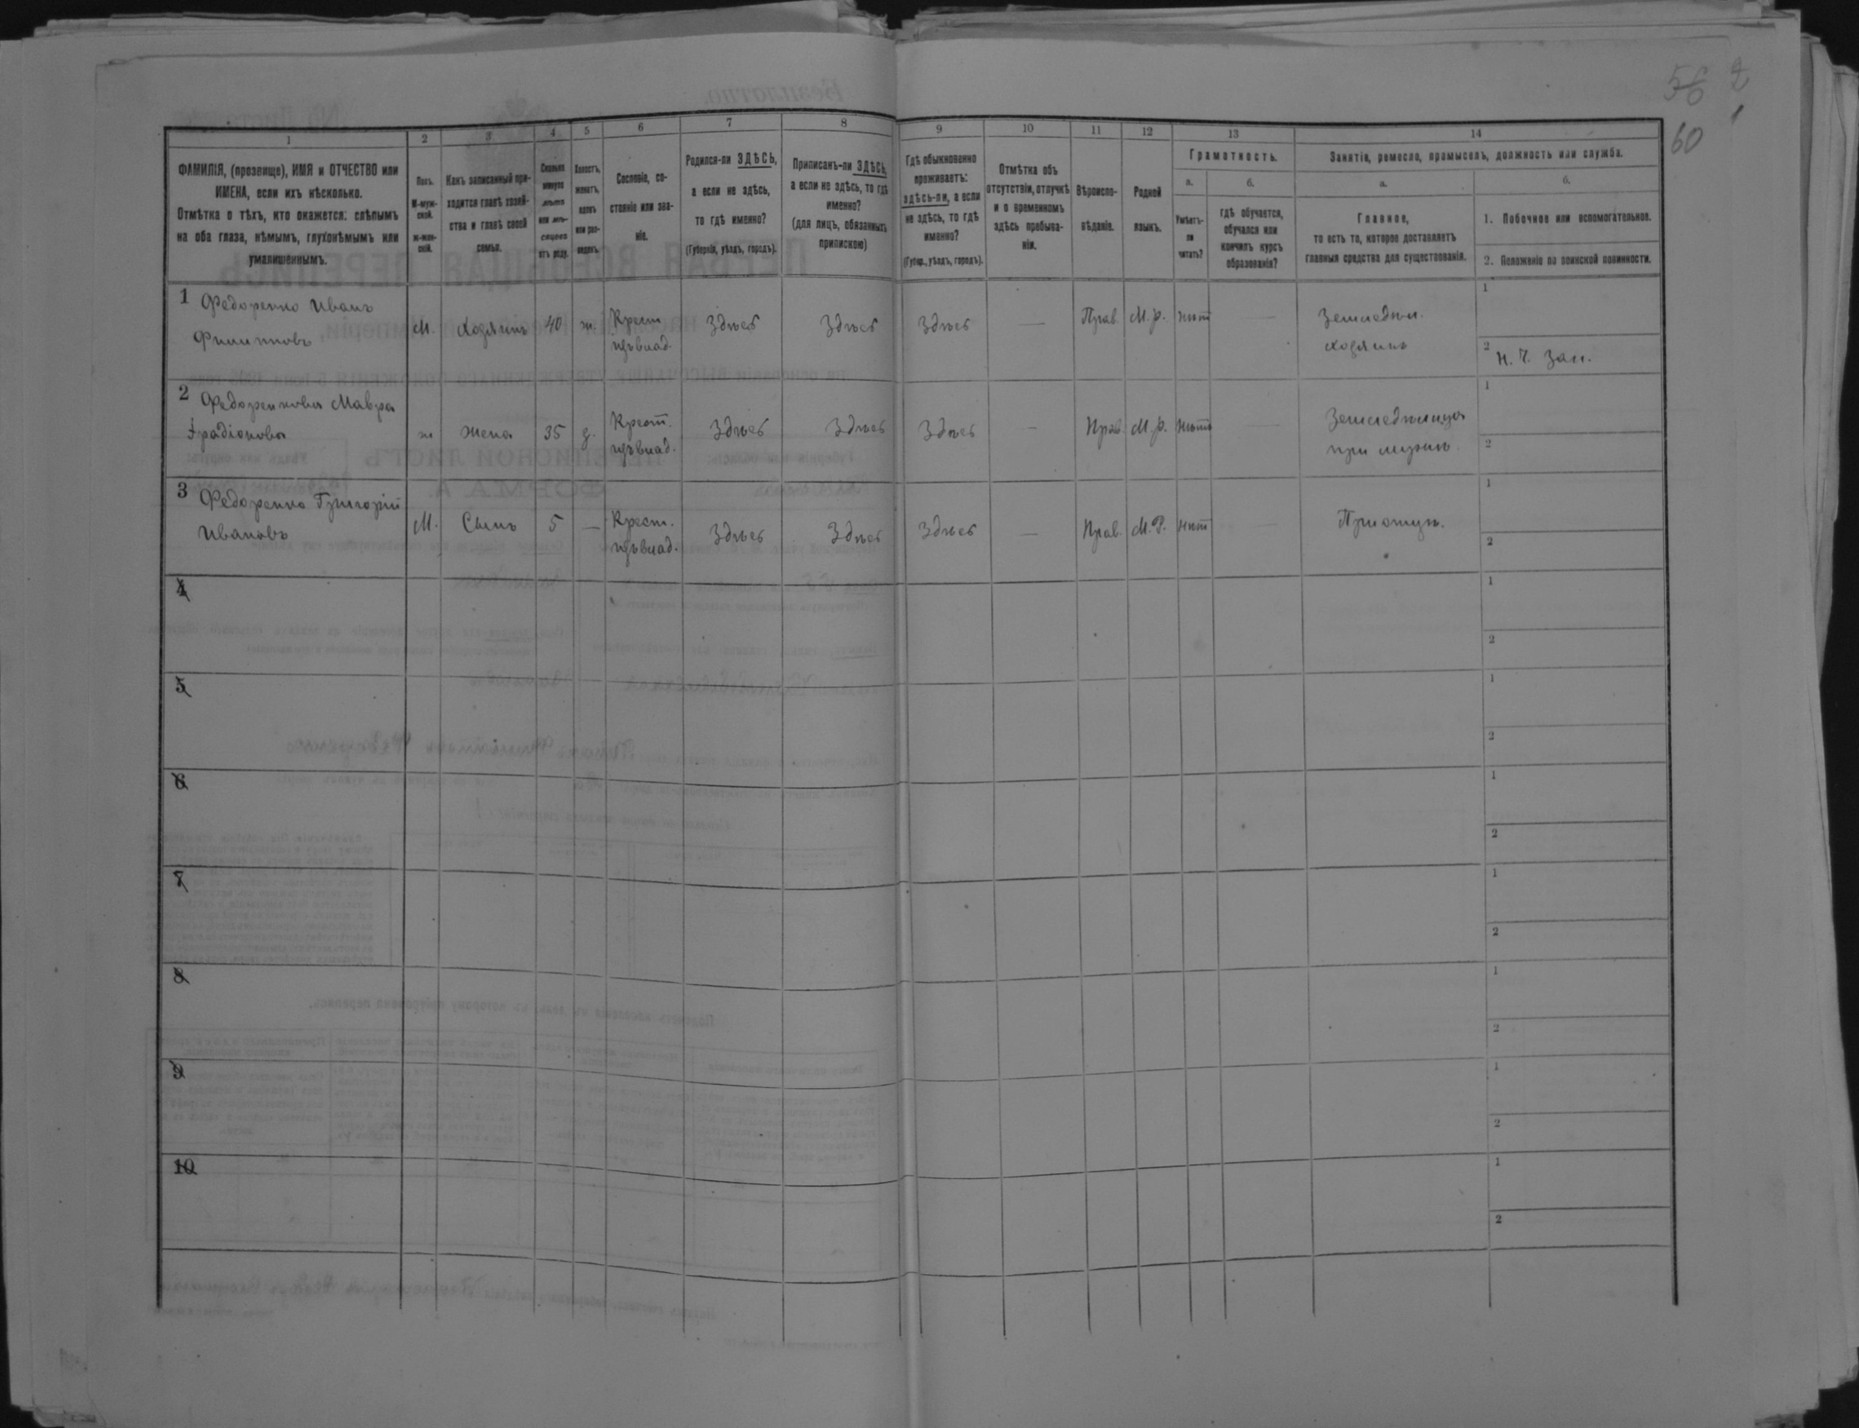 56 2
1
60
1 2 3 4 5 6 7 8 9 10 11 12 13 14
ФАМИЛІЯ, (прозвище), ИМЯ и ОТЧЕСТВО или
ИМЕНА, если ихъ нѣсколько.
Отмѣтка о тѣхъ, кто окажется: слѣпымъ
на оба глаза, нѣмымъ, глухонѣмымъ или
умалишеннымъ.
Полъ.
М-муж-
ской.
ж-жен-
скій.
Какъ записанный при-
ходится главѣ хозяй-
ства и главѣ своей
семьи.
Сколько
минуло
лѣтъ
или мѣ-
сяцевъ
отъ роду.
Холостъ,
женатъ,
вдовъ
или раз-
веденъ.
Сословіе, со-
стояніе или зва-
ніе.
Родился-ли ЗДѢСЬ,
а если не здѣсь,
то гдѣ именно?
(Губернія, уѣздъ, городъ).
Приписанъ-ли ЗДѢСЬ,
а если не здѣсь, то гдѣ
именно?
(для лицъ, обязанныхъ
припискою)
Гдѣ обыкновенно
проживаетъ:
здѣсь-ли, а если
не здѣсь, то гдѣ
именно?
(Губер., уѣздъ, городъ).
Отмѣтка объ
отсутствіи, отлучкѣ
и о временномъ
здѣсь пребыва-
ніи.
Вѣроиспо-
вѣданіе.
Родной
языкъ.
Грамотность.
а.
Умѣетъ-
ли
читать?
б.
гдѣ обучается,
обучался или
кончилъ курсъ
образованія?
Занятіе, ремесло, промыселъ, должность или служба.
а.
Главное,
то есть то, которое доставляетъ
главныя средства для существованія.
б.
1. Побочное или вспомогательное.
2. Положеніе по воинской повинности.
1 Федоренко Иванъ М. Хозяинъ 40 ж. Крест. Здѣсь Здѣсь Здѣсь — Прав. М.р. нѣтъ — Земледѣл. 1
Филиповъ хозяинъ 2 Н. Ч. Зап.
2 Федоренкова Мавра ж Жена 35 з. Крест. Здѣсь Здѣсь Здѣсь — Прав. М.р. нѣтъ — Земледѣлица 1
при мужѣ. 2
3 Федоренко Григорій М. Сынъ 5 — Крест. Здѣсь Здѣсь Здѣсь — Прав. М.Р. нѣтъ — При отцѣ. 1
Ивановъ 2
4 1
2
5 1
2
6 1
2
7 1
2
8 1
2
9 1
2
10 1
2